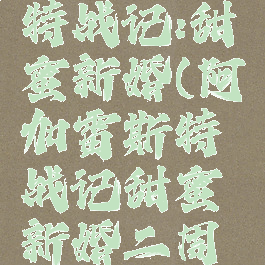 特战记:甜
蜜新婚(阿
加雷斯特
战记甜蜜
新婚二周